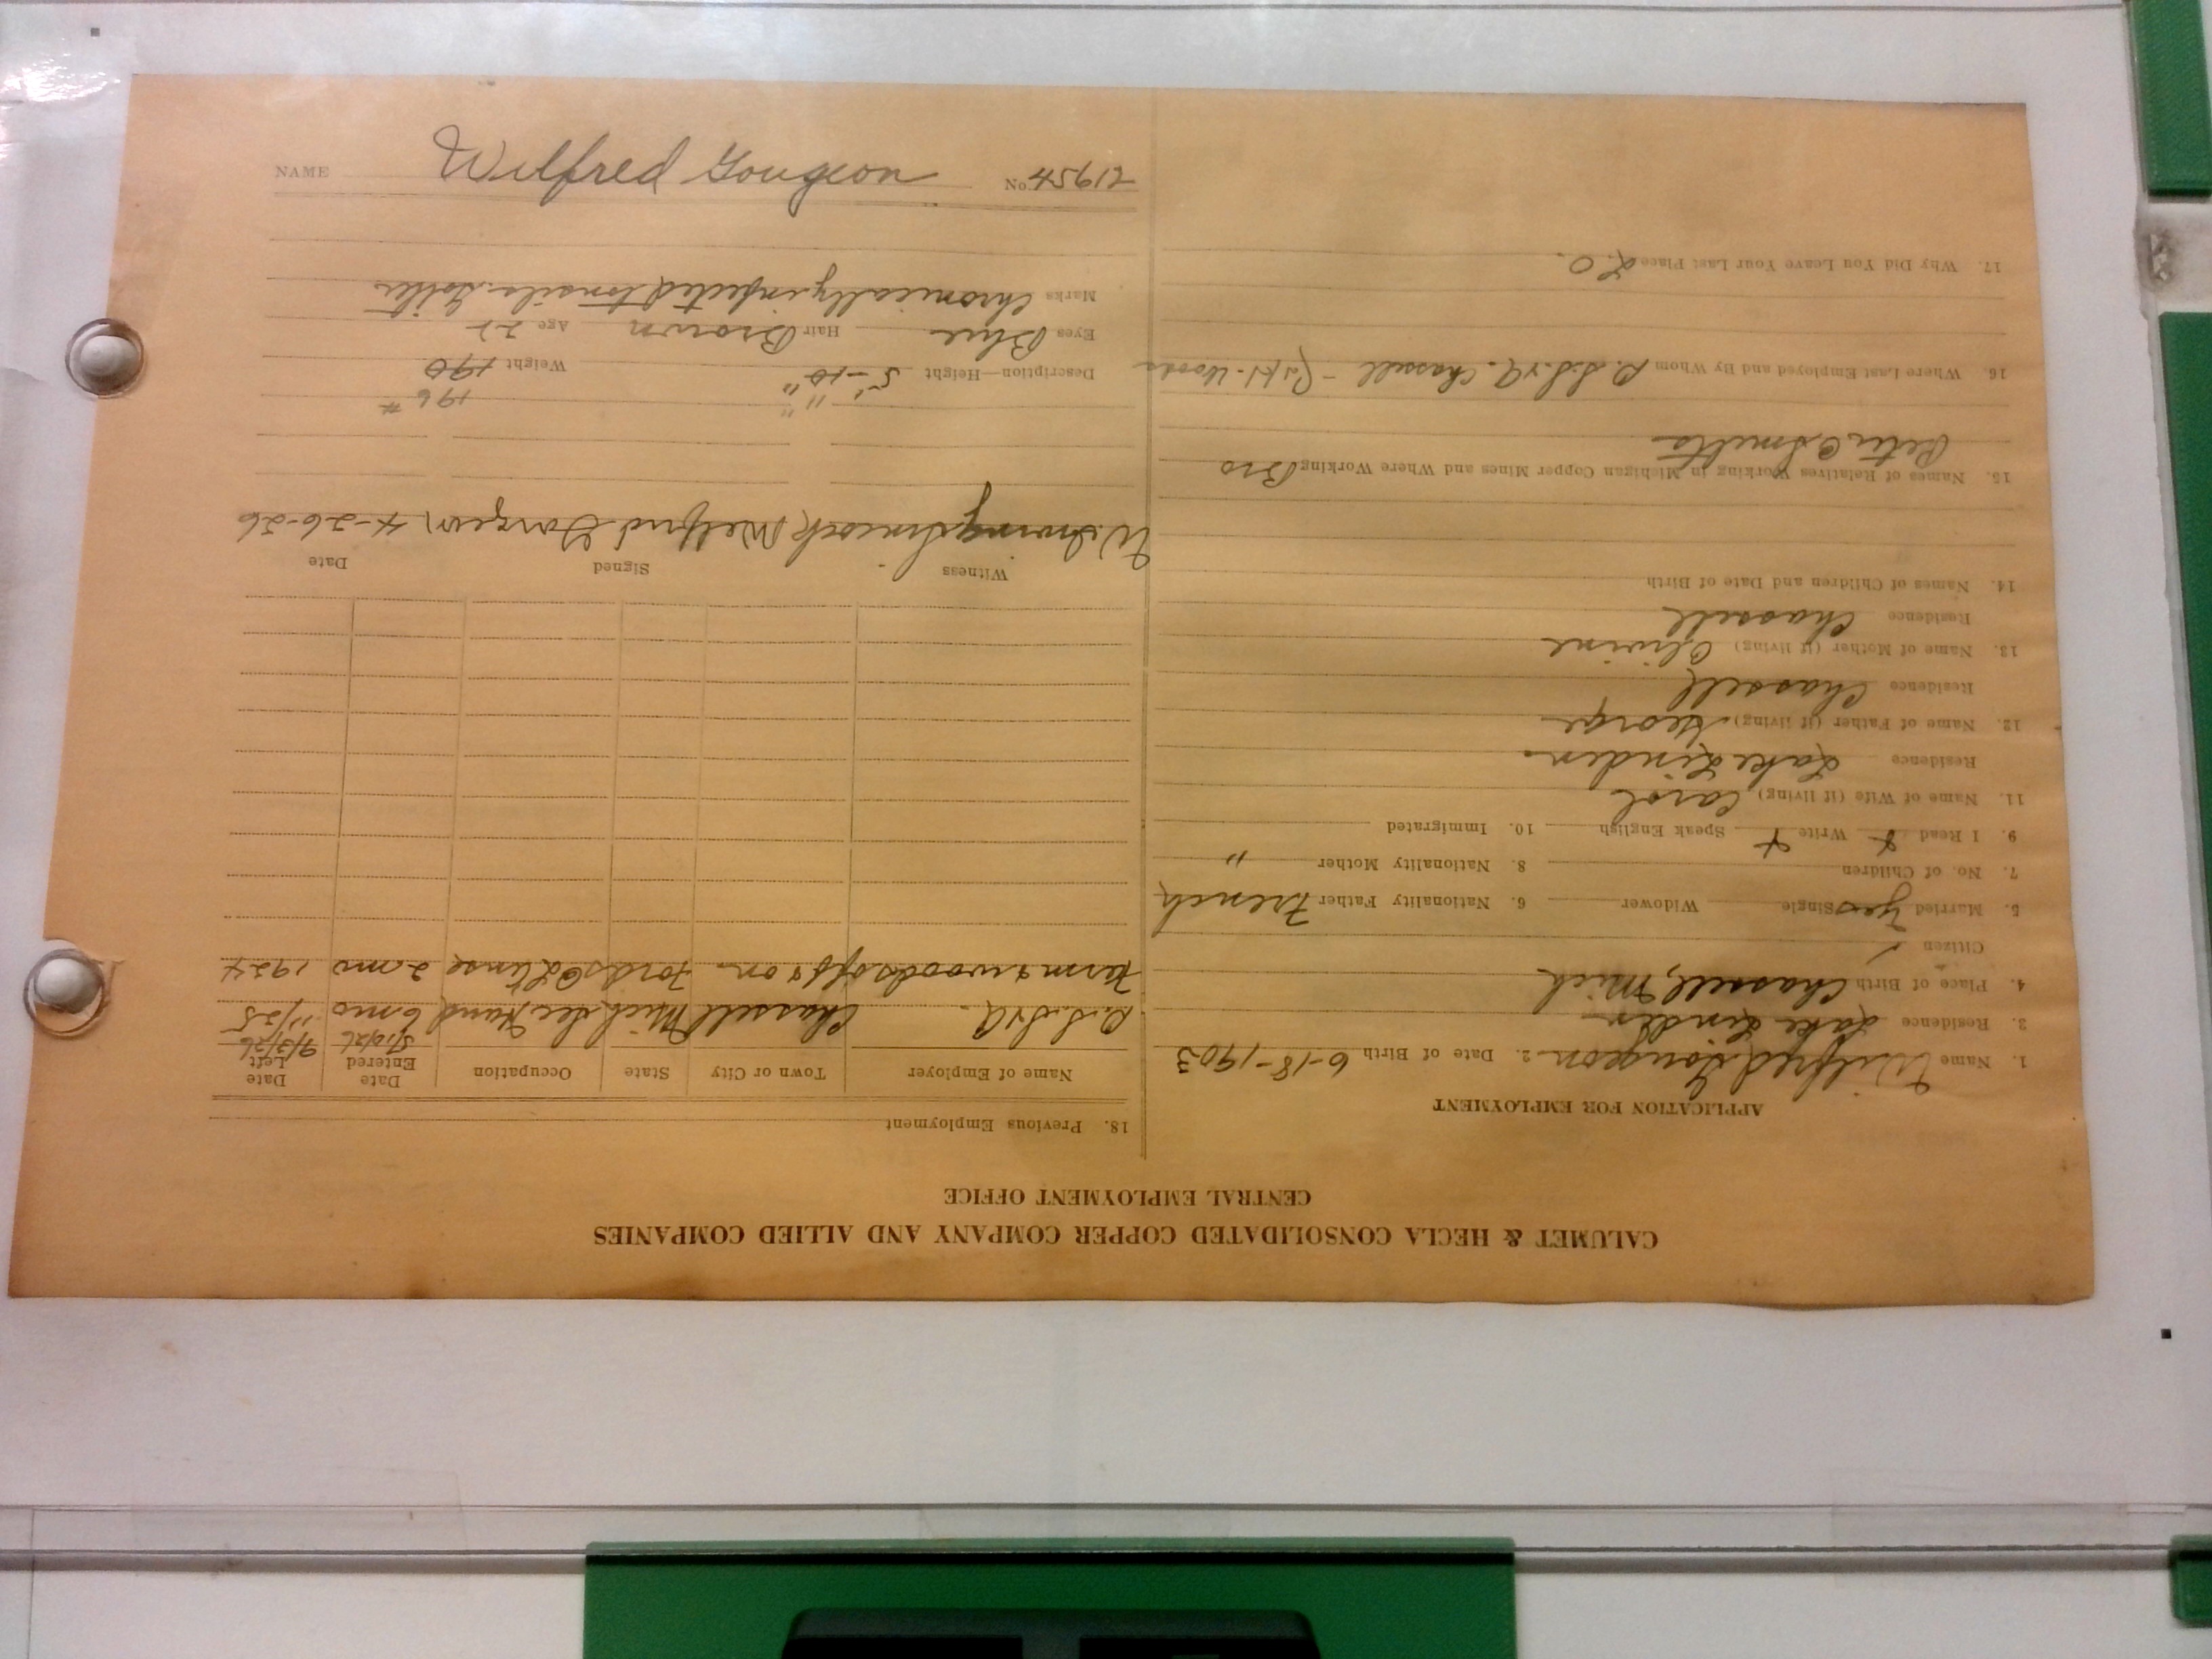 CALUMET & HECLA CONSOLIDATED COPPER COMPANY AND ALLIED COMPANIES
CENTRAL EMPLOYMENT OFFICE
APPLICATION FOR EMPLOYMENT
1. Name Wilfred Gougeon 2. Date of Birth 6-18-1903
3. Residence Lake Linden
4. Place of Birth Chassell, Mich
Citizen
5. Married Yes Single Widower 6. Nationality Father French
7. No. of Children 8. Nationality Mother "
9. I Read Write Speak English 10. Immigrated
11. Name of Wife (if living) Carol
Residence Lake Linden
12. Name of Father (if living) George
Residence Chassell
13. Name of Mother (if living) Olivine
Residence Chassell
14. Names of Children and Date of Birth
15. Names of Relatives Working in Michigan Copper Mines and Where Working Bro
Peter C Smelta
16. Where Last Employed and By Whom Chassell Woods
17. Why Did You Leave Your Last Place L.O.
18. Previous Employment
Name of Employer Town or City State Occupation Date Entered Date Left
5/10/26 9/3/26
Chassell Mich 6 mo 11/25
Farm & woods off & on Fords L'Anse 2 mo 1924
Witness Signed Date
Wilfred Gougeon 4-26-26
" " 196 #
Description—Height 5'-10" Weight 190
Eyes Blue Hair Brown Age 22
Marks Chronically infected tonsils. Goiter
NAME Wilfred Gougeon No. 45612